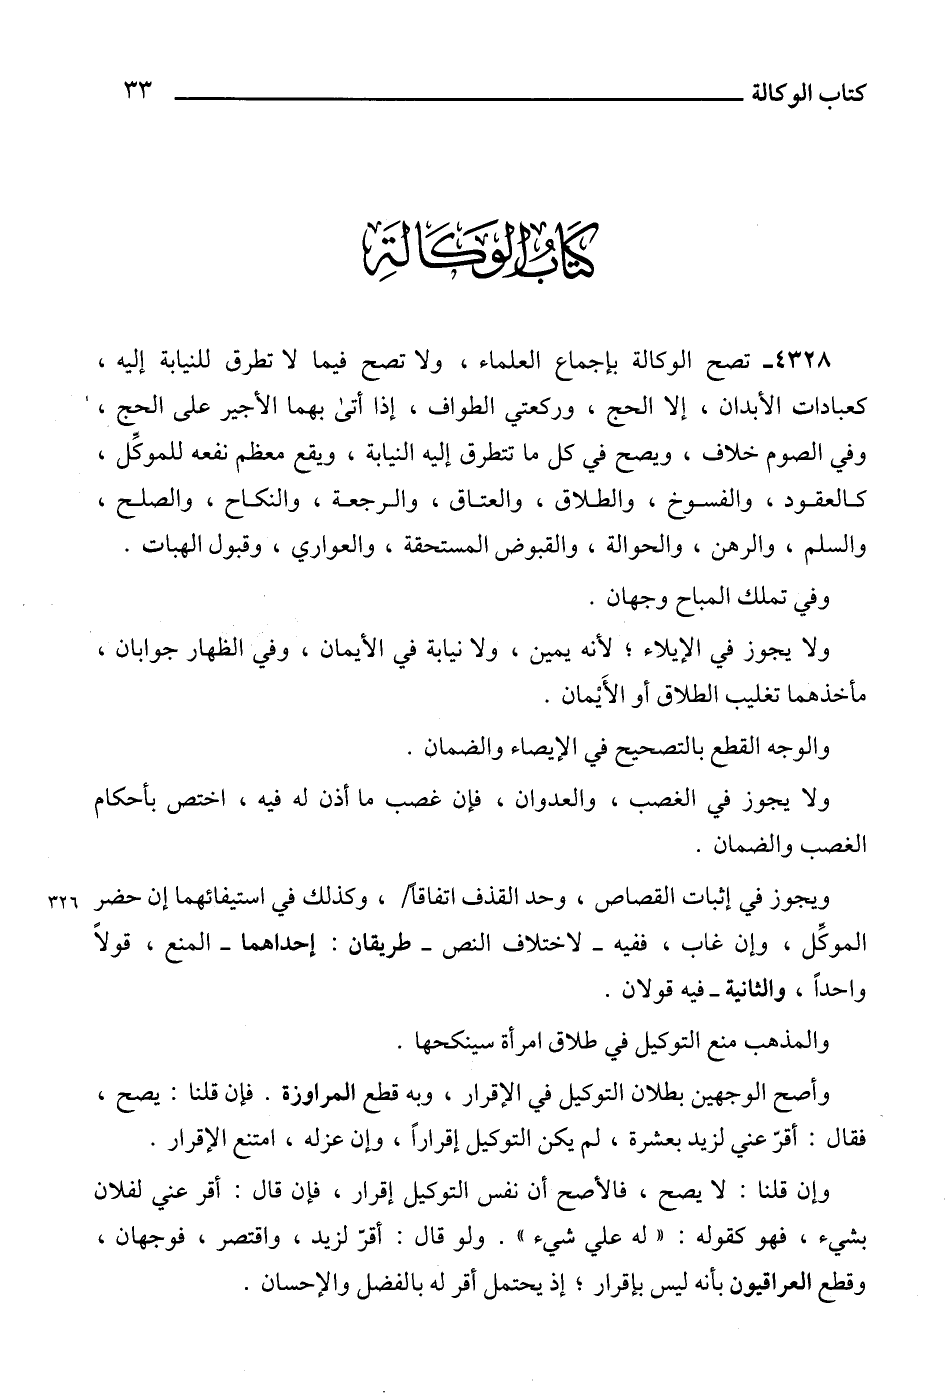 كتاب الوكالة ٣٣
كتاب الوكالة
٤٣٢٨ـ تصح الوكالة بإجماع العلماء ، ولا تصح فيما لا تطرق للنيابة إليه ،
كعبادات الأبدان ، إلا الحج ، وركعتي الطواف ، إذا أتىٰ بهما الأجير على الحج ،
وفي الصوم خلاف ، ويصح في كل ما تتطرق إليه النيابة ، ويقع معظم نفعه للموكِّل ،
كـالعقـود ، والفسـوخ ، والطـلاق ، والعتـاق ، والـرجعـة ، والنكـاح ، والصلـح ،
والسلم ، والرهن ، والحوالة ، والقبوض المستحقة ، والعواري ، وقبول الهبات .
وفي تملك المباح وجهان .
ولا يجوز في الإيلاء ؛ لأنه يمين ، ولا نيابة في الأيمان ، وفي الظهار جوابان ،
مأخذهما تغليب الطلاق أو الأَيْمان .
والوجه القطع بالتصحيح في الإيصاء والضمان .
ولا يجوز في الغصب ، والعدوان ، فإن غصب ما أذن له فيه ، اختص بأحكام
الغصب والضمان .
ويجوز في إثبات القصاص ، وحد القذف اتفاقاً/ ، وكذلك في استيفائهما إن حضر ٣٢٦
الموكِّل ، وإن غاب ، ففيه ـ لاختلاف النص ـ طريقان : إحداهما ـ المنع ، قولاً
واحداً ، والثانية ـ فيه قولان .
والمذهب منع التوكيل في طلاق امرأة سينكحها .
وأصح الوجهين بطلان التوكيل في الإقرار ، وبه قطع المراوزة . فإن قلنا : يصح ،
فقال : أقرّ عني لزيد بعشرة ، لم يكن التوكيل إقراراً ، وإن عزله ، امتنع الإقرار .
وإن قلنا : لا يصح ، فالأصح أن نفس التوكيل إقرار ، فإن قال : أقر عني لفلان
بشيء ، فهو كقوله : « له علي شيء » . ولو قال : أقرّ لزيد ، واقتصر ، فوجهان ،
وقطع العراقيون بأنه ليس بإقرار ؛ إذ يحتمل أقر له بالفضل والإحسان .